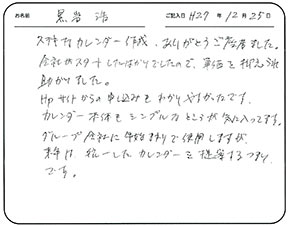 お名前 黒岩 浩 ご記入日 H27年12月25日
ステキなカレンダー作成、ありがとうございました。
会社がスタートしたばかりでしたので、単価を抑えられ
助かりました。
Hpサイトからの申し込みもわかりやすかったです。
カレンダー本体もシンプルなところが気に入ってます。
グループ会社に年始まわりで使用しますが、
来年は、統一したカレンダーを提案するつもり
です。